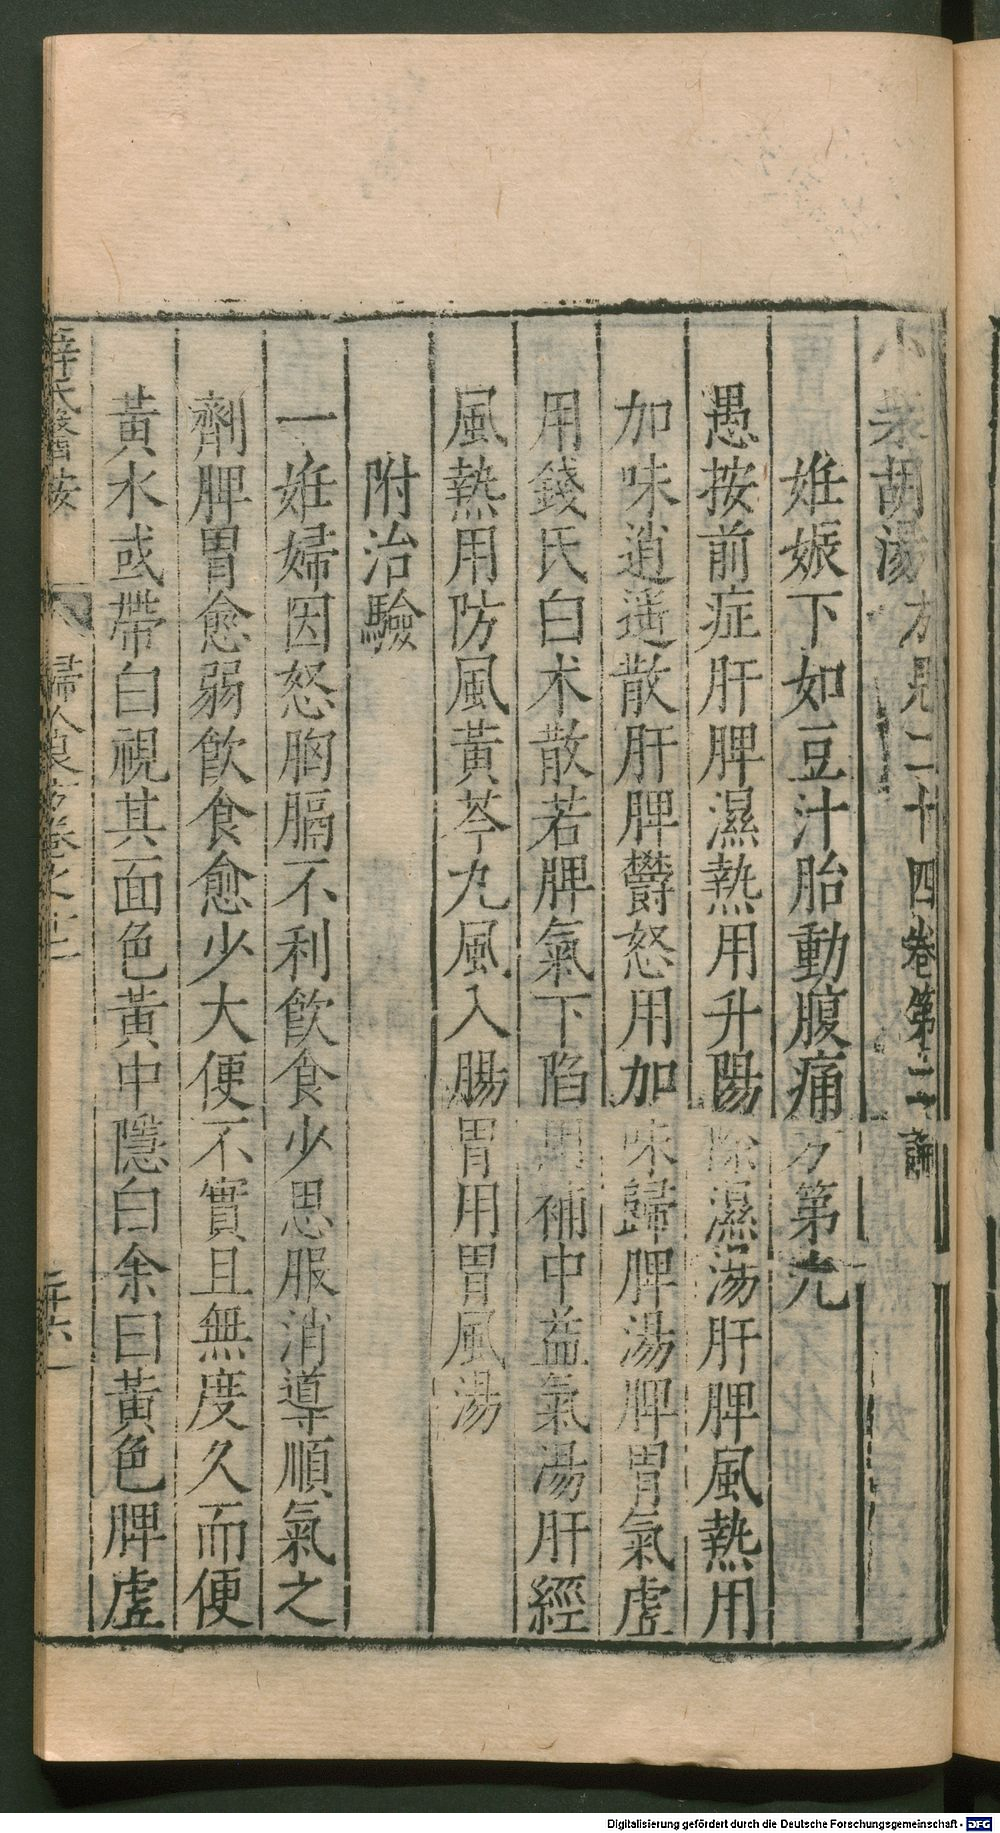 小柴胡湯方見二十四卷第二論
姙娠下如豆汁胎動腹痛方第九
愚按前症肝脾濕熱用升陽除濕湯肝脾風熱用
加味逍遥散肝脾鬱怒用加味歸脾湯脾胃氣虛
用錢氏白朮散若脾氣下陷用補中益氣湯肝經
風熱用防風黃芩丸風入腸胃用胃風湯
附治驗
一姙婦因怒胸膈不利飲食少思服消導順氣之
劑脾胃愈弱飲食愈少大便不實且無度久而便
黃水或帶白視其面色黃中隱白余曰黃色脾虛
薛氏醫按 婦人良方卷之十二 二十六
Digitalisierung gefördert durch die Deutsche Forschungsgemeinschaft - DFG